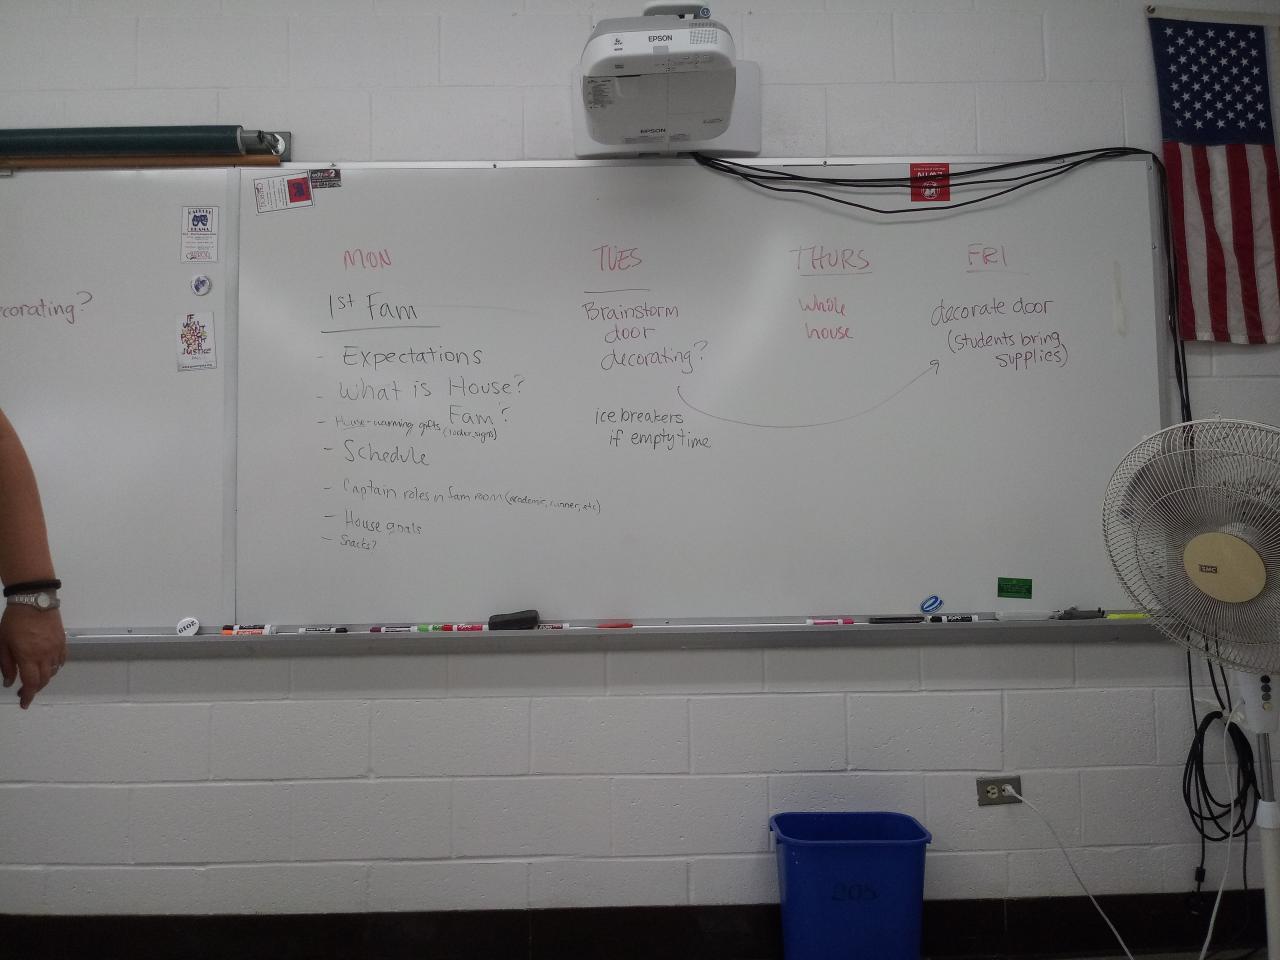 EPSON
EPSON
MON
TUES
THURS
FRI
1st Fam
- Expectations
- What is House?
Fam?
- House-warming gifts (locker signs)
- Schedule
- Captain roles in fam room (academic, runner, etc)
- House goals
- Snacks?
Brainstorm
door
decorating?
ice breakers
if empty time
Whole
house
decorate door
(students bring
supplies)
corating?
DRAMA
IF
YOU
WANT
PEACE
WORK
FOR
JUSTICE
2010
EXPO
205